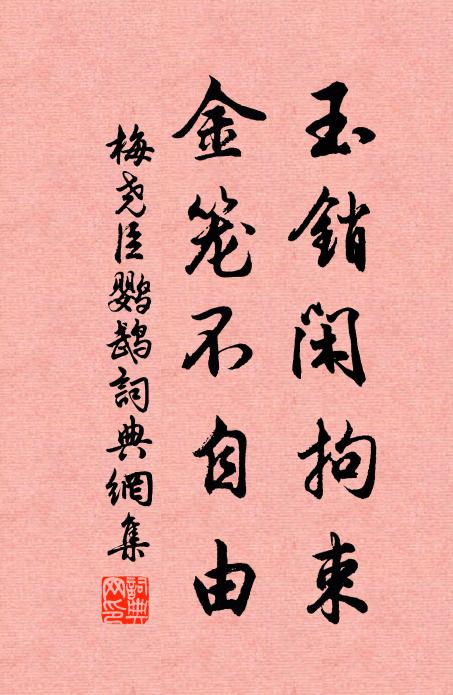 玉銷閑拘束
金笼不自由
梅尧臣鸚鵡詞典網集
詞典
网印